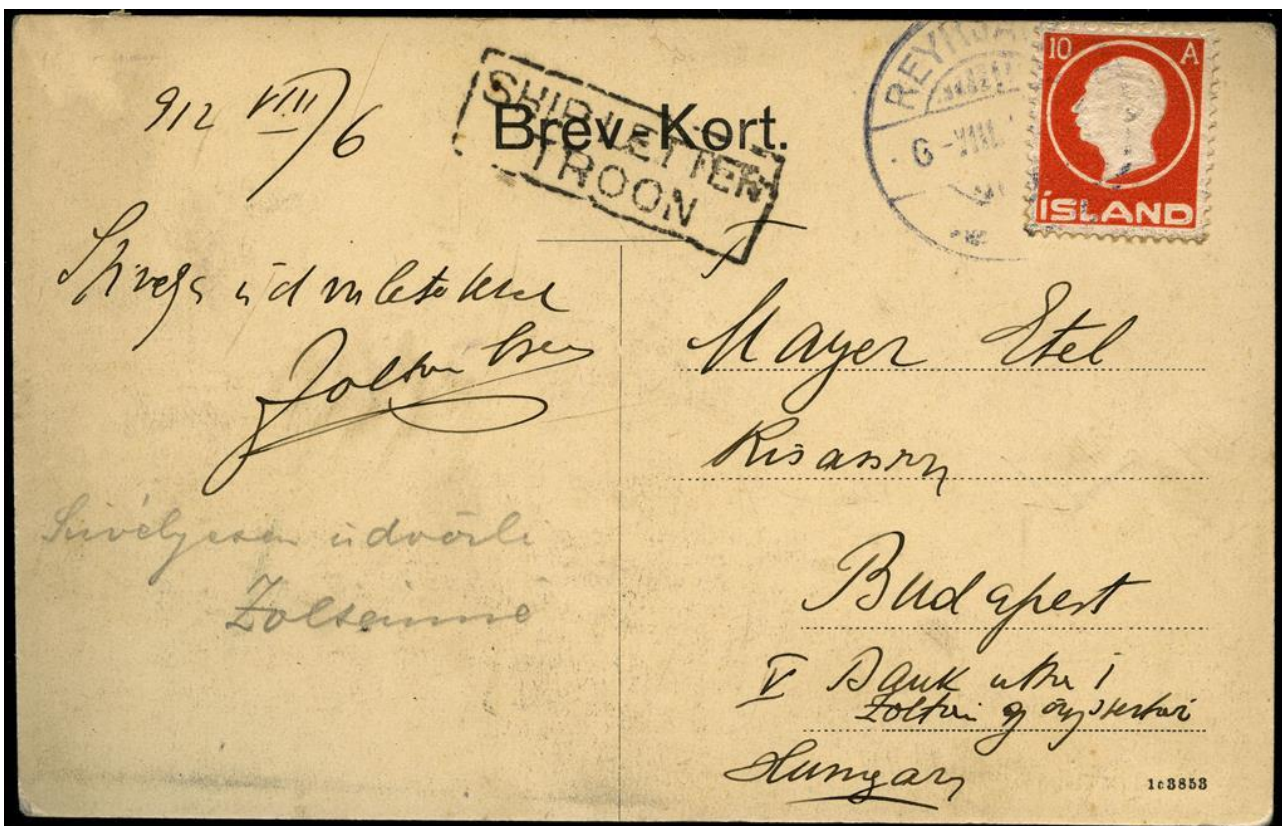 912 VIII/6
Brev-Kort.
SHIP LETTER
TROON
REYKJA
6-VIII.
10 A
ÍSLAND
Szives üdvözlettel
Zoltán
Szivélyesen üdvözli
Zoltánné
Mayer Etel
Kisasszony
Budapest
V Bank utca 1
Zoltán
Hungary
1c3853